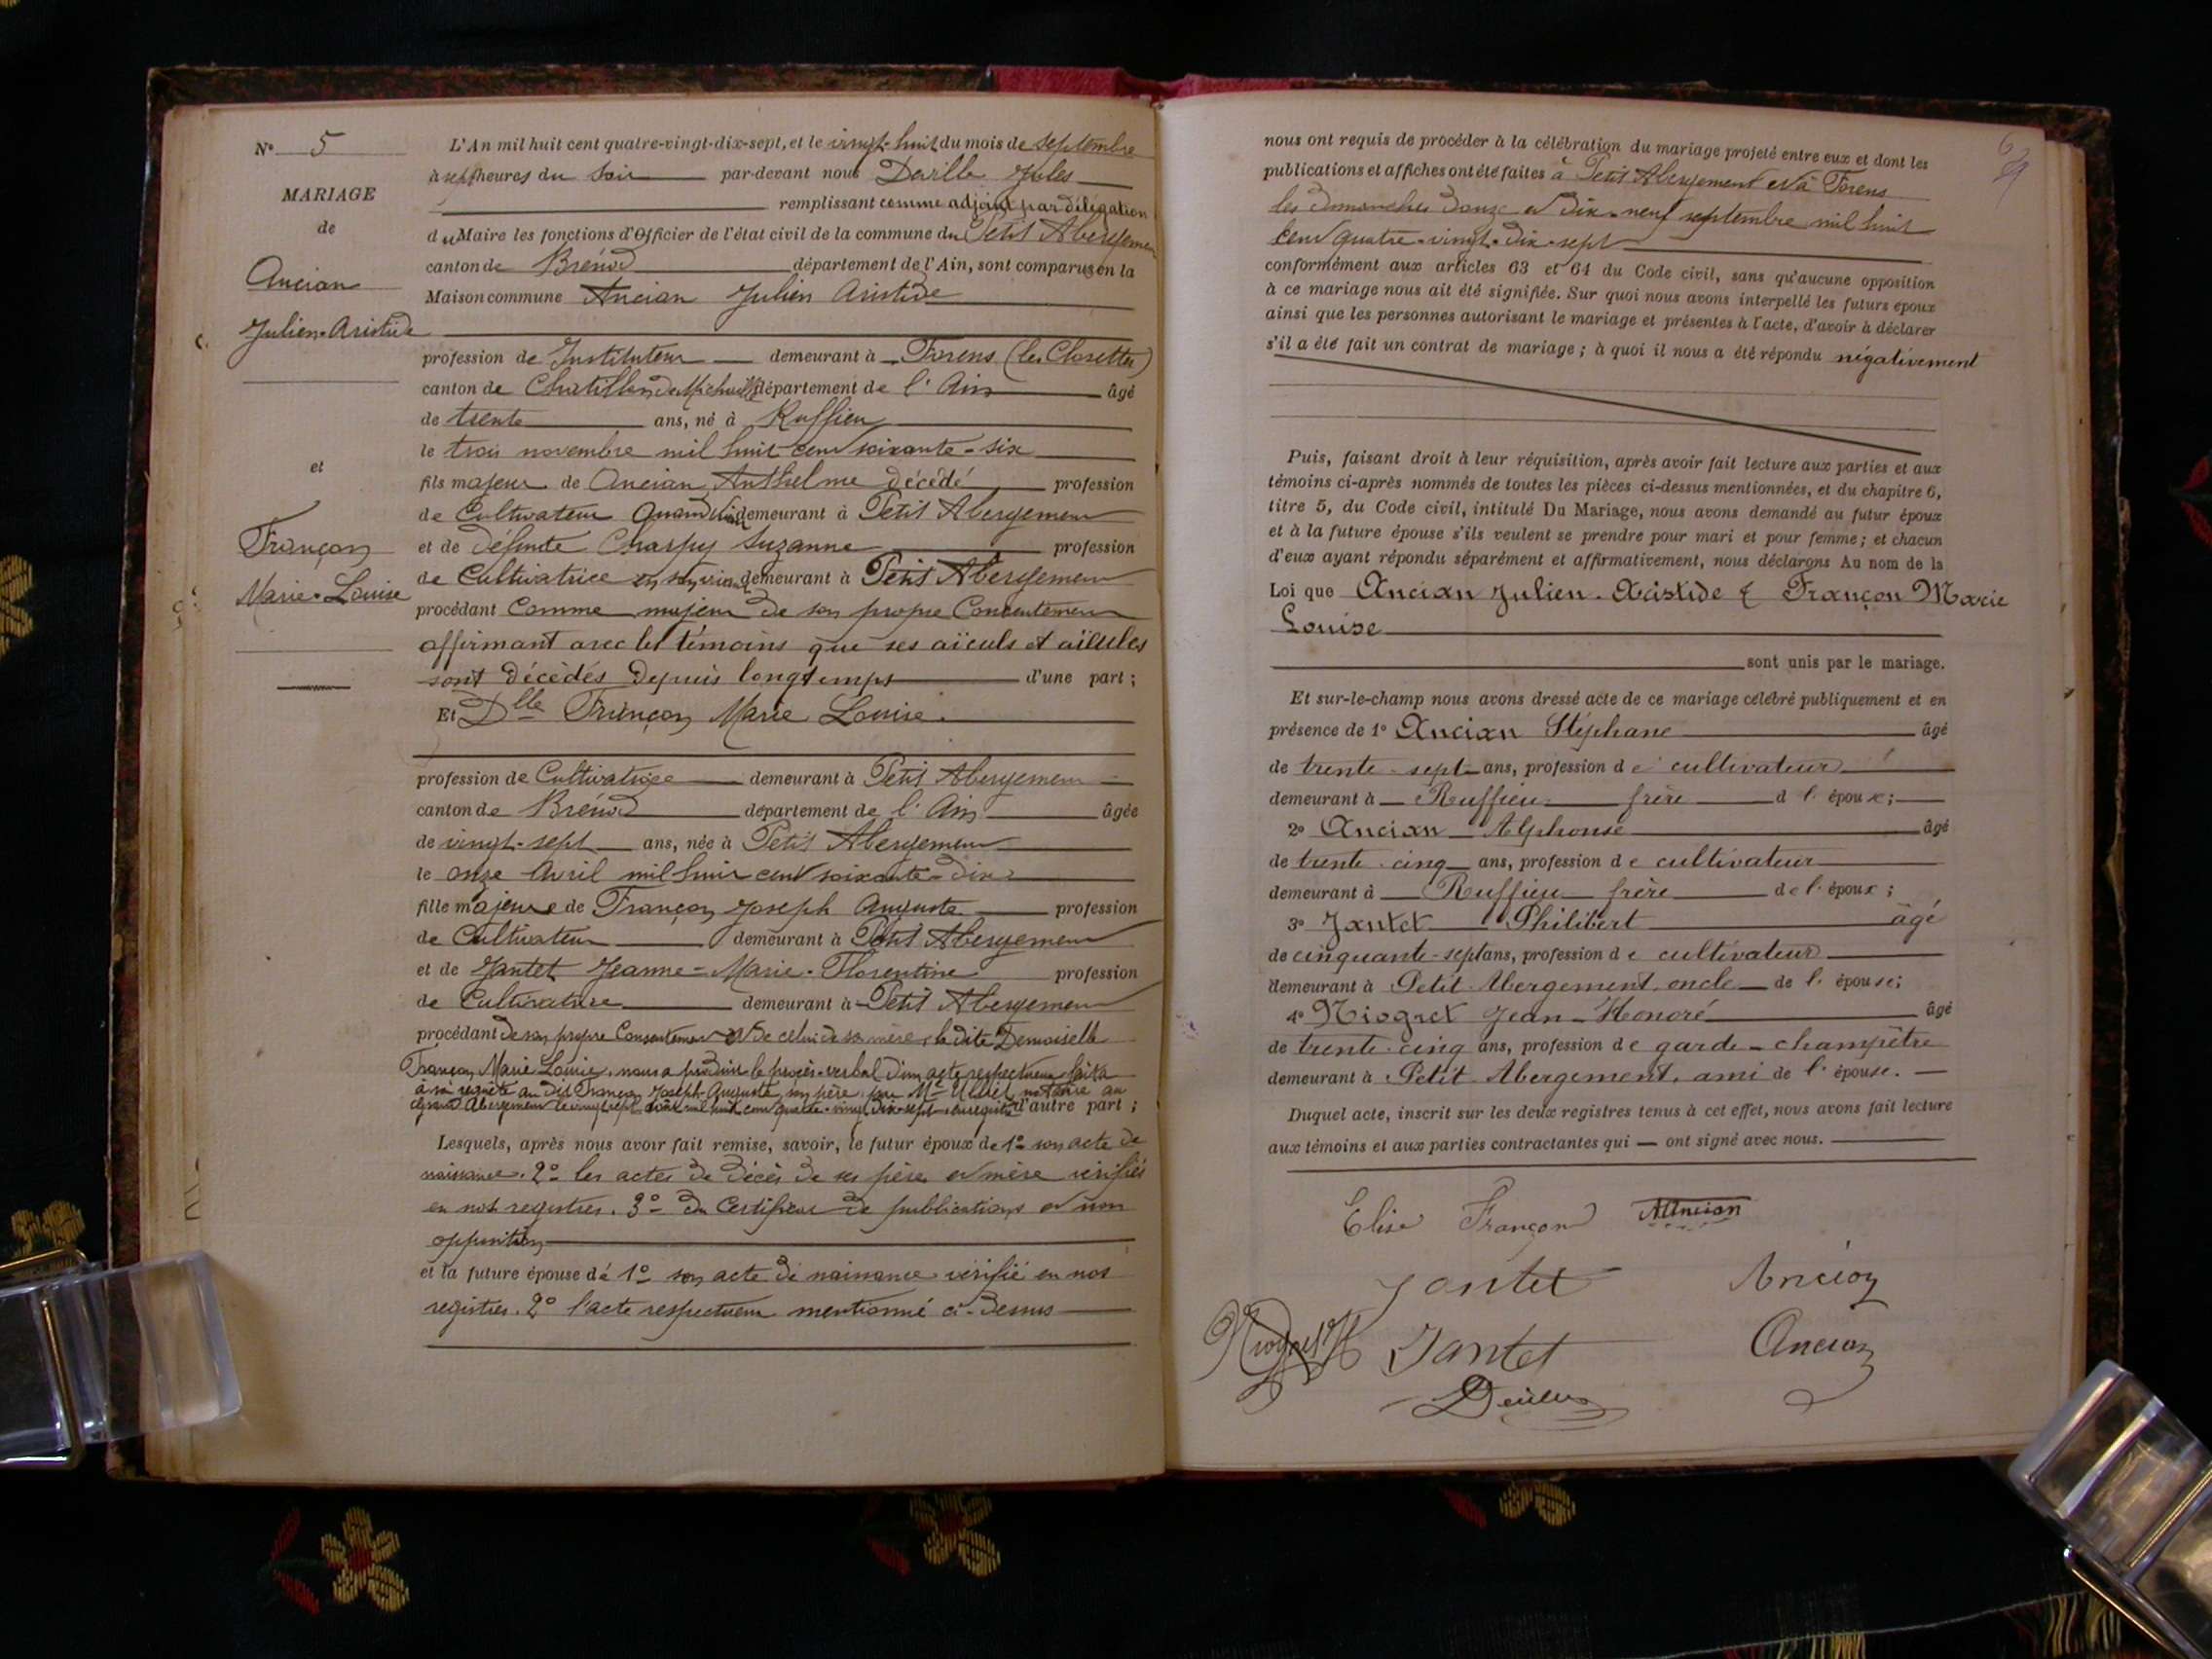 N° 5
MARIAGE
de
Ancian
Julien-Aristide
et
Françon
Marie-Louise
L'An mil huit cent quatre-vingt-dix-sept, et le vingt-huit du mois de septembre
à sept heures du soir par-devant nous Deville Jules
remplissant comme adjoint par délégation
du Maire les fonctions d'Officier de l'état civil de la commune du Petit Abergement
canton de Brénod département de l'Ain, sont comparus en la
Maison commune Ancian Julien Aristide
profession de Instituteur demeurant à Forens (les Closettes)
canton de Chatillon de Michaille département de l'Ain âgé
de trente ans, né à Ruffieu
le trois novembre mil huit cent soixante-six
fils majeur de Ancian Anthelme décédé profession
de Cultivateur quand vivait demeurant à Petit Abergement
et de défunte Charpy Suzanne profession
de Cultivatrice en son vivant demeurant à Petit Abergement
procédant comme majeur de son propre Concentement
affirmant avec les témoins que ses aïeuls et aïeules
sont décédés depuis longtemps d'une part;
Et Dlle Françon Marie Louise.
profession de Cultivatrice demeurant à Petit Abergement
canton de Brénod département de l'Ain âgée
de vingt-sept ans, née à Petit Abergement
le onze Avril mil huit cent soixante-dix
fille majeure de Françon Joseph Auguste profession
de Cultivateur demeurant à Petit Abergement
et de Jantet Jeanne-Marie-Florentine profession
de Cultivatrice demeurant à Petit Abergement
procédant de son propre Consentement et de celui de sa mère, la dite Demoiselle
Françon Marie Louise, nous a produit le procès-verbal d'un acte respectueux fait
à sa requête au dit Françon Joseph-Auguste, son père, par Me notaire au
Grand Abergement le vingt sept mil huit cent quatre-vingt dix-sept enregistré d'autre part;
Lesquels, après nous avoir fait remise, savoir, le futur époux de 1° son acte de
naissance. 2° les actes de décès de ses père et mère vérifiés
en nos registres. 3° du Certificat de publications et non
opposition
et la future épouse dé 1° son acte de naissance vérifié en nos
registres. 2° l'acte respectueux mentionné ci-dessus
nous ont requis de procéder à la célébration du mariage projeté entre eux et dont les
publications et affiches ont été faites à Petit Abergement et à Forens
les dimanches douze et dix-neuf septembre mil huit
cent quatre-vingt-dix-sept
conformément aux articles 63 et 64 du Code civil, sans qu'aucune opposition
à ce mariage nous ait été signifiée. Sur quoi nous avons interpellé les futurs epoux
ainsi que les personnes autorisant le mariage et présentes à l'acte, d'avoir à déclarer
s'il a été fait un contrat de mariage; à quoi il nous a été répondu négativement
Puis, faisant droit à leur réquisition, après avoir fait lecture aux parties et aux
témoins ci-après nommés de toutes les pièces ci-dessus mentionnées, et du chapitre 6,
titre 5, du Code civil, intitulé Du Mariage, nous avons demandé au futur époux
et à la future épouse s'ils veulent se prendre pour mari et pour femme; et chacun
d'eux ayant répondu séparément et affirmativement, nous déclarons Au nom de la
Loi que Ancian Julien-Aristide & Françon Marie
Louise
sont unis par le mariage.
Et sur-le-champ nous avons dressé acte de ce mariage célébré publiquement et en
présence de 1° Ancian Stéphane âgé
de trente-sept ans, profession de cultivateur
demeurant à Ruffieu frère d l'époux;
2° Ancian Alphonse âgé
de trente-cinq ans, profession de cultivateur
demeurant à Ruffieu frère de l'époux;
3° Jantet Philibert âgé
de cinquante-sept ans, profession de cultivateur
demeurant à Petit Abergement, oncle de l'épouse;
4° Niogret Jean-Honoré âgé
de trente-cinq ans, profession de garde-champêtre
demeurant à Petit Abergement, ami de l'épouse.
Duquel acte, inscrit sur les deux registres tenus à cet effet, nous avons fait lecture
aux témoins et aux parties contractantes qui ont signé avec nous.
Elise Françon
Ancian
Jantet
Ancian
Niogret H
Jantet
Ancian
Deville